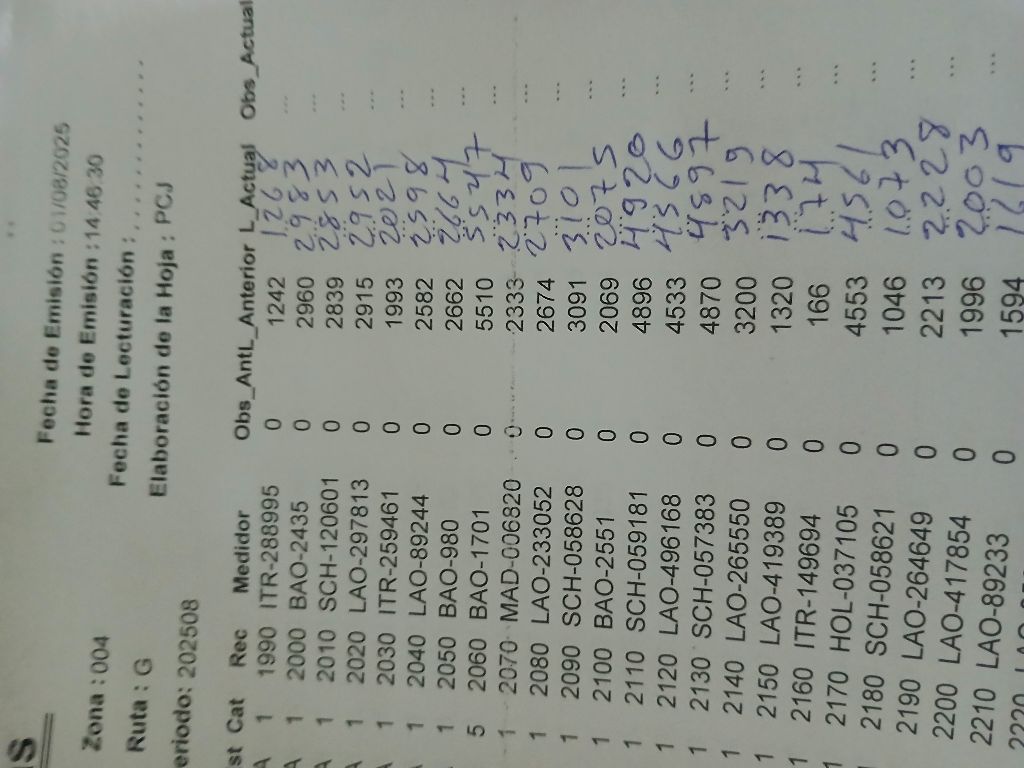 S
Zona : 004 Fecha de Emisión : 01/08/2025
Ruta : G Hora de Emisión : 14:46:30
Fecha de Lecturación : ..............
eriodo: 202508 Elaboración de la Hoja : PCJ
st Cat Rec Medidor Obs_Ant L_Anterior L_Actual Obs_Actual
A 1 1990 ITR-288995 0 1242 1268 ...
A 1 2000 BAO-2435 0 2960 2983 ...
A 1 2010 SCH-120601 0 2839 2853 ...
A 1 2020 LAO-297813 0 2915 2952 ...
1 2030 ITR-259461 0 1993 2021 ...
1 2040 LAO-89244 0 2582 2598 ...
1 2050 BAO-980 0 2662 2664 ...
5 2060 BAO-1701 0 5510 5547 ...
1 2070 MAD-006820 0 2333 2334 ...
1 2080 LAO-233052 0 2674 2709 ...
1 2090 SCH-058628 0 3091 3101 ...
1 2100 BAO-2551 0 2069 2075 ...
1 2110 SCH-059181 0 4896 4920 ...
1 2120 LAO-496168 0 4533 4566 ...
1 2130 SCH-057383 0 4870 4897 ...
1 2140 LAO-265550 0 3200 3219 ...
1 2150 LAO-419389 0 1320 1338 ...
1 2160 ITR-149694 0 166 174 ...
1 2170 HOL-037105 0 4553 4561 ...
2180 SCH-058621 0 1046 1073 ...
2190 LAO-264649 0 2213 2228 ...
2200 LAO-417854 0 1996 2003 ...
2210 LAO-89233 0 1594 1619 ...
2220